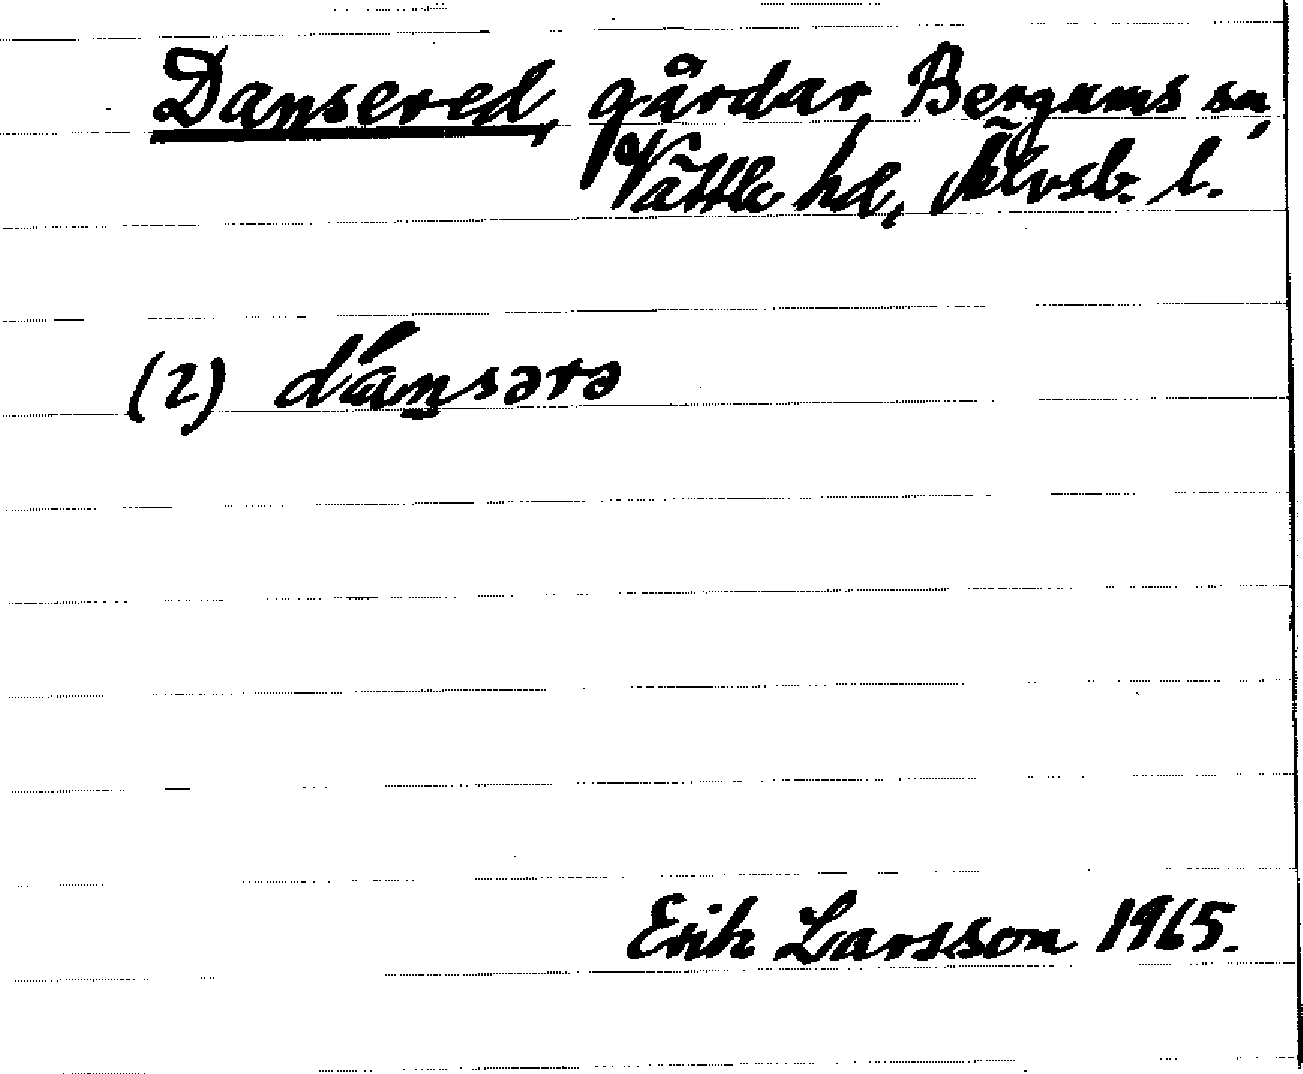 Dansered, gårdar Bergums sn,
Vättle hd, Älvsb. l.
(2) dánsərə
Erik Larsson 1965.